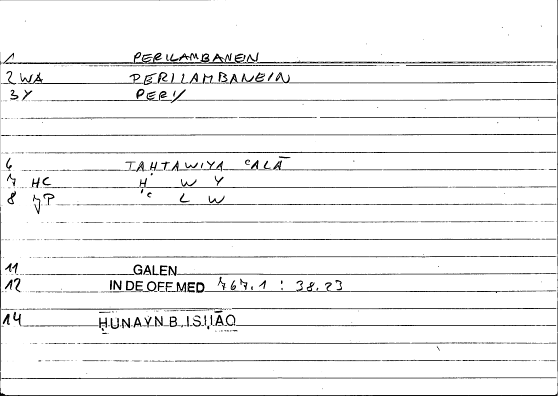 1 PERILAMBANEIN
2 WA PERILAMBANEIN
3 Y PERI/
6 TAḤTAWIYA ᶜALĀ
7 HC Ḥ W Y
8 JP ᶜ L W
11 GALEN
12 IN DE OFF.MED 767.1 : 38.23
14 ḤUNAYN B.ISḤĀQ